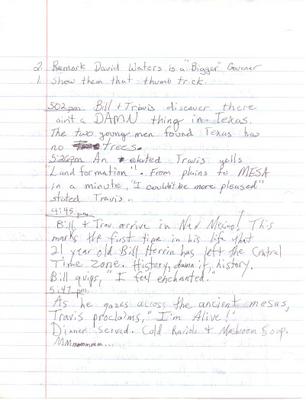 2. Remark David Waters is a "Bigger" Governer
1. Show them that thumb trick.
5:02 pm Bill + Travis discover there
ain't a DAMN thing in Texas.
The two young men found Texas has
no trees.
5:26pm An elated Travis yells
Land formation"! From plains to MESA
in a minute, "I couldn't be more pleased"
stated Travis.
4:45 pm
Bill + Trav arrive in New Mexico! This
marks the first time in his life that
21 year old Bill Herrin has left the Central
Time Zone. History, damn it, history.
Bill quips, "I feel enchanted."
5:47 pm
As he gazes across the ancient mesas,
Travis proclaims, "I'm Alive!"
Dinner served. Cold Ravioli + Mushroom Soup.
Mmmmmmm...